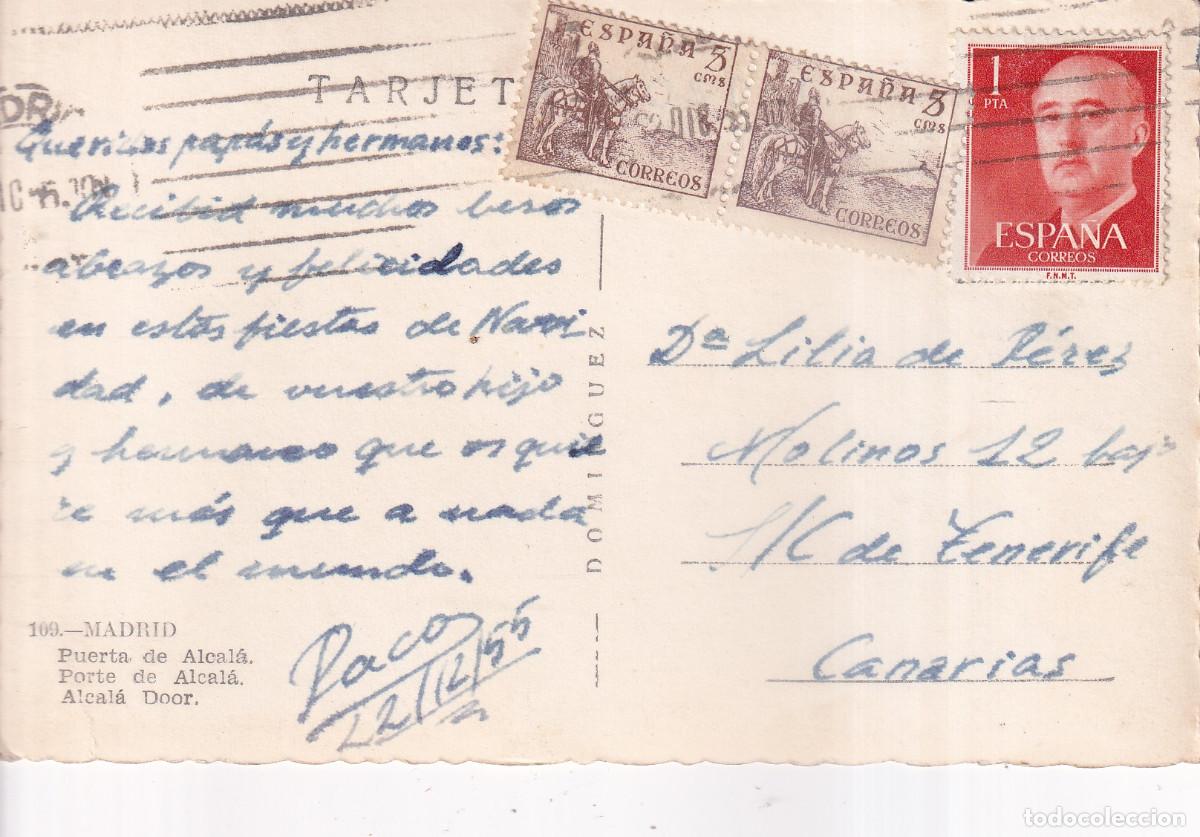 TARJET
ESPAÑA 5
cms
CORREOS
ESPAÑA 5
cms
CORREOS
1
PTA
ESPAÑA
CORREOS
F.N.M.T.
DIC
Queridos papás y hermanos:
Recibid muchos besos
abrazos y felicidades
en estas fiestas de Navi
dad, de vuestro hijo
y hermano que os quie
re más que a nada
en el mundo.
Paco
22/12/55
109.—MADRID
Puerta de Alcalá.
Porte de Alcalá.
Alcalá Door.
DOMINGUEZ
Dª Lilia de Pérez
Molinos 12 bajo
S/C de Tenerife
Canarias
todocoleccion